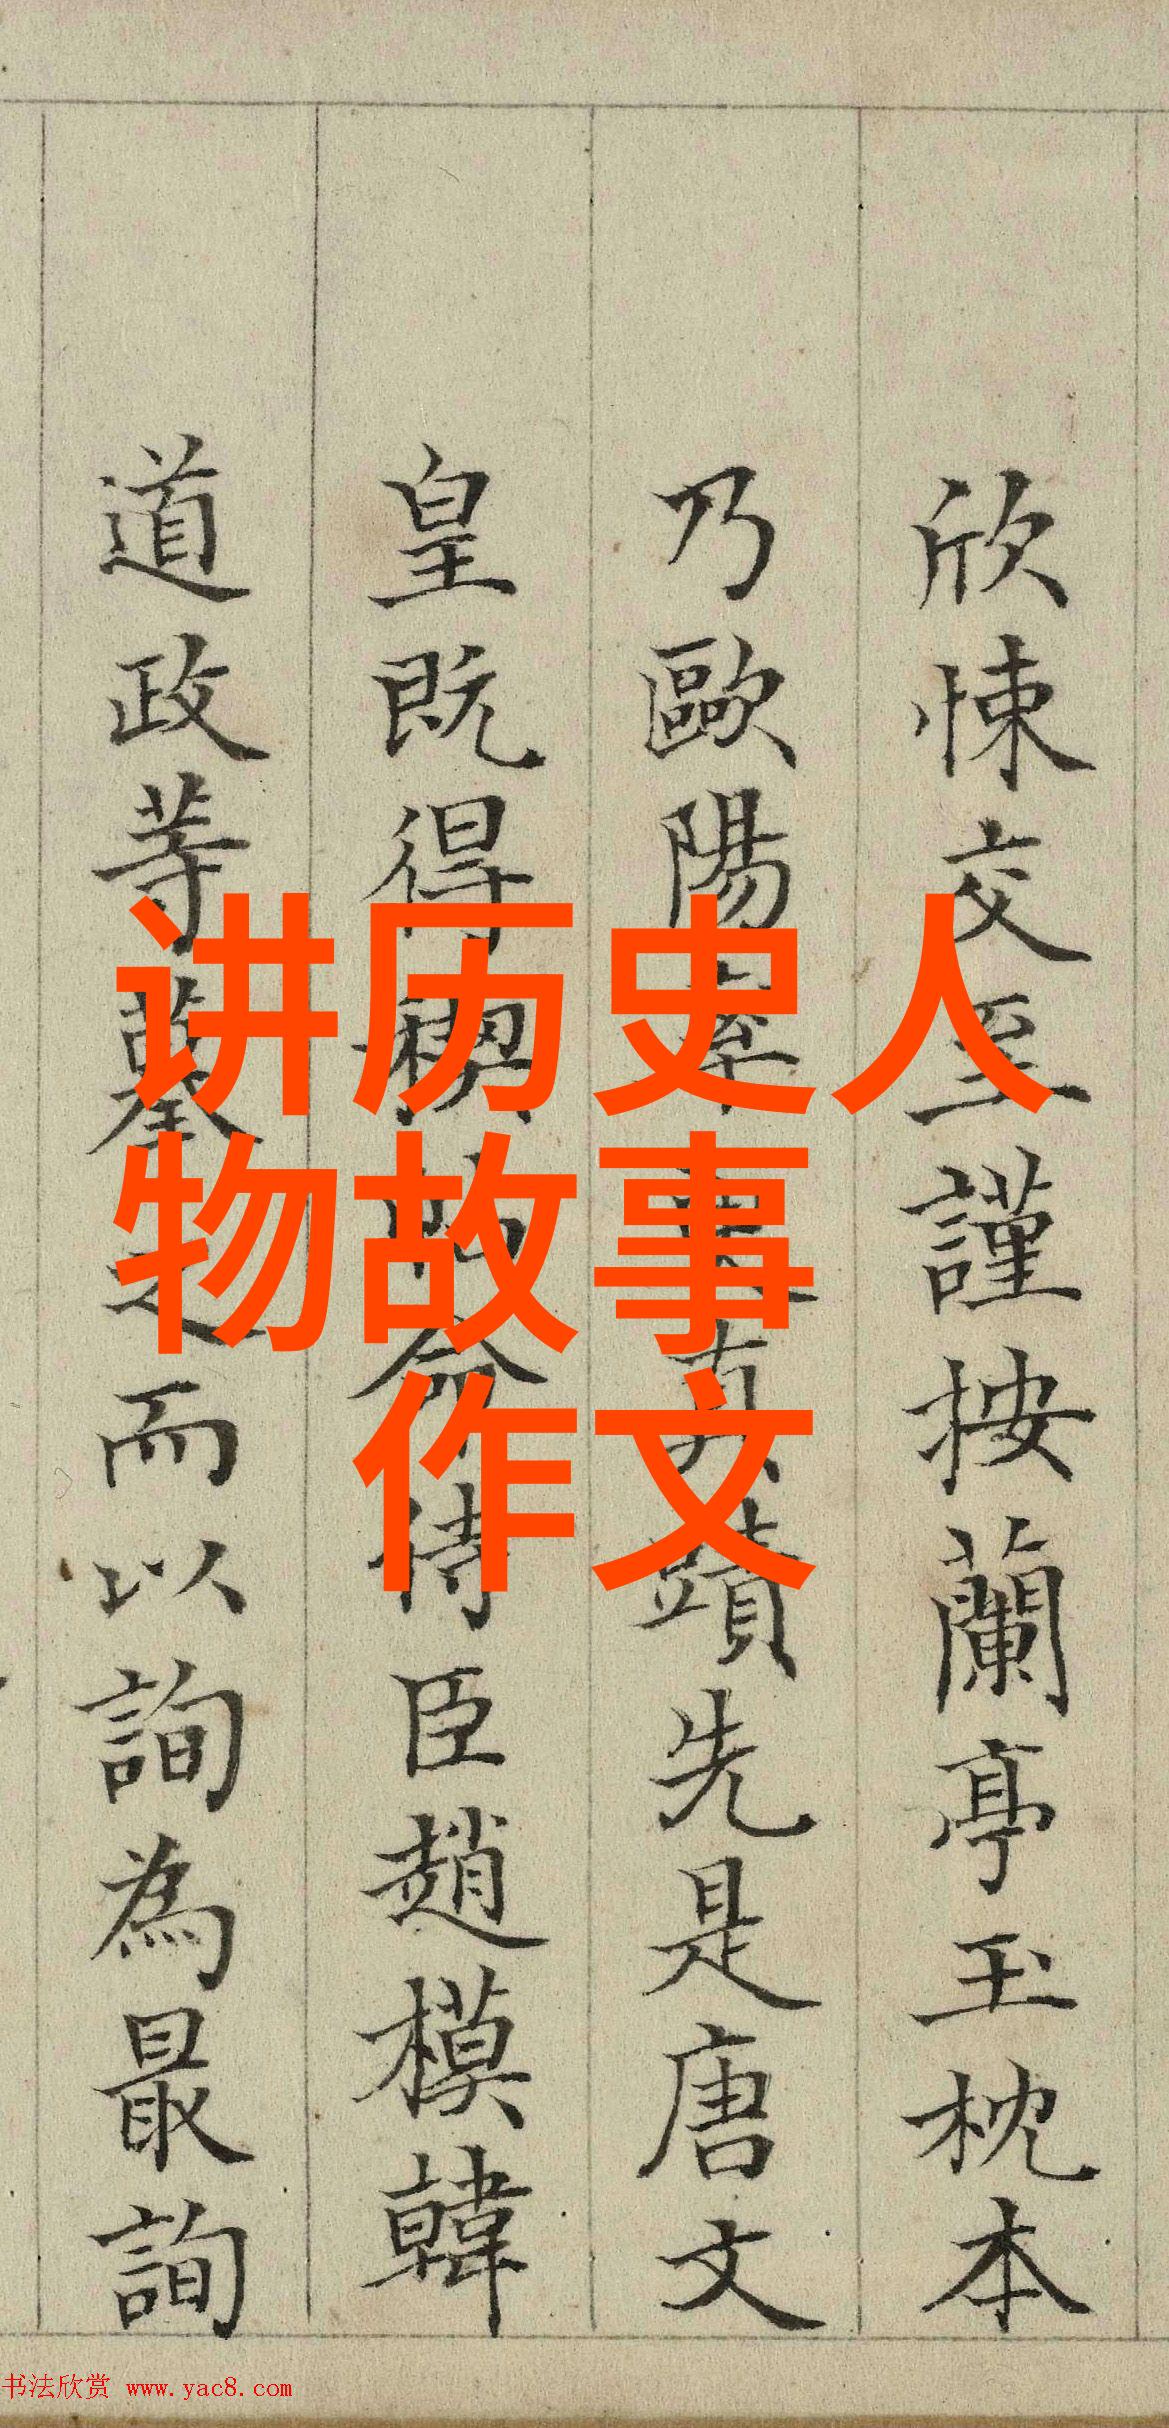 欣悚交至謹按蘭亭玉枕本
乃歐陽率更真蹟先是唐文
皇既得禊帖命待臣趙模韓
道政等摹之而以詢為最詢
讲历史人
物故事
作文
书法欣赏 www.yac8.com